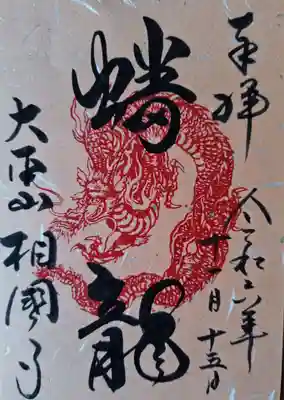 奉拝
令和六年
十一月十五日
蟠龍
大本山 相國寺